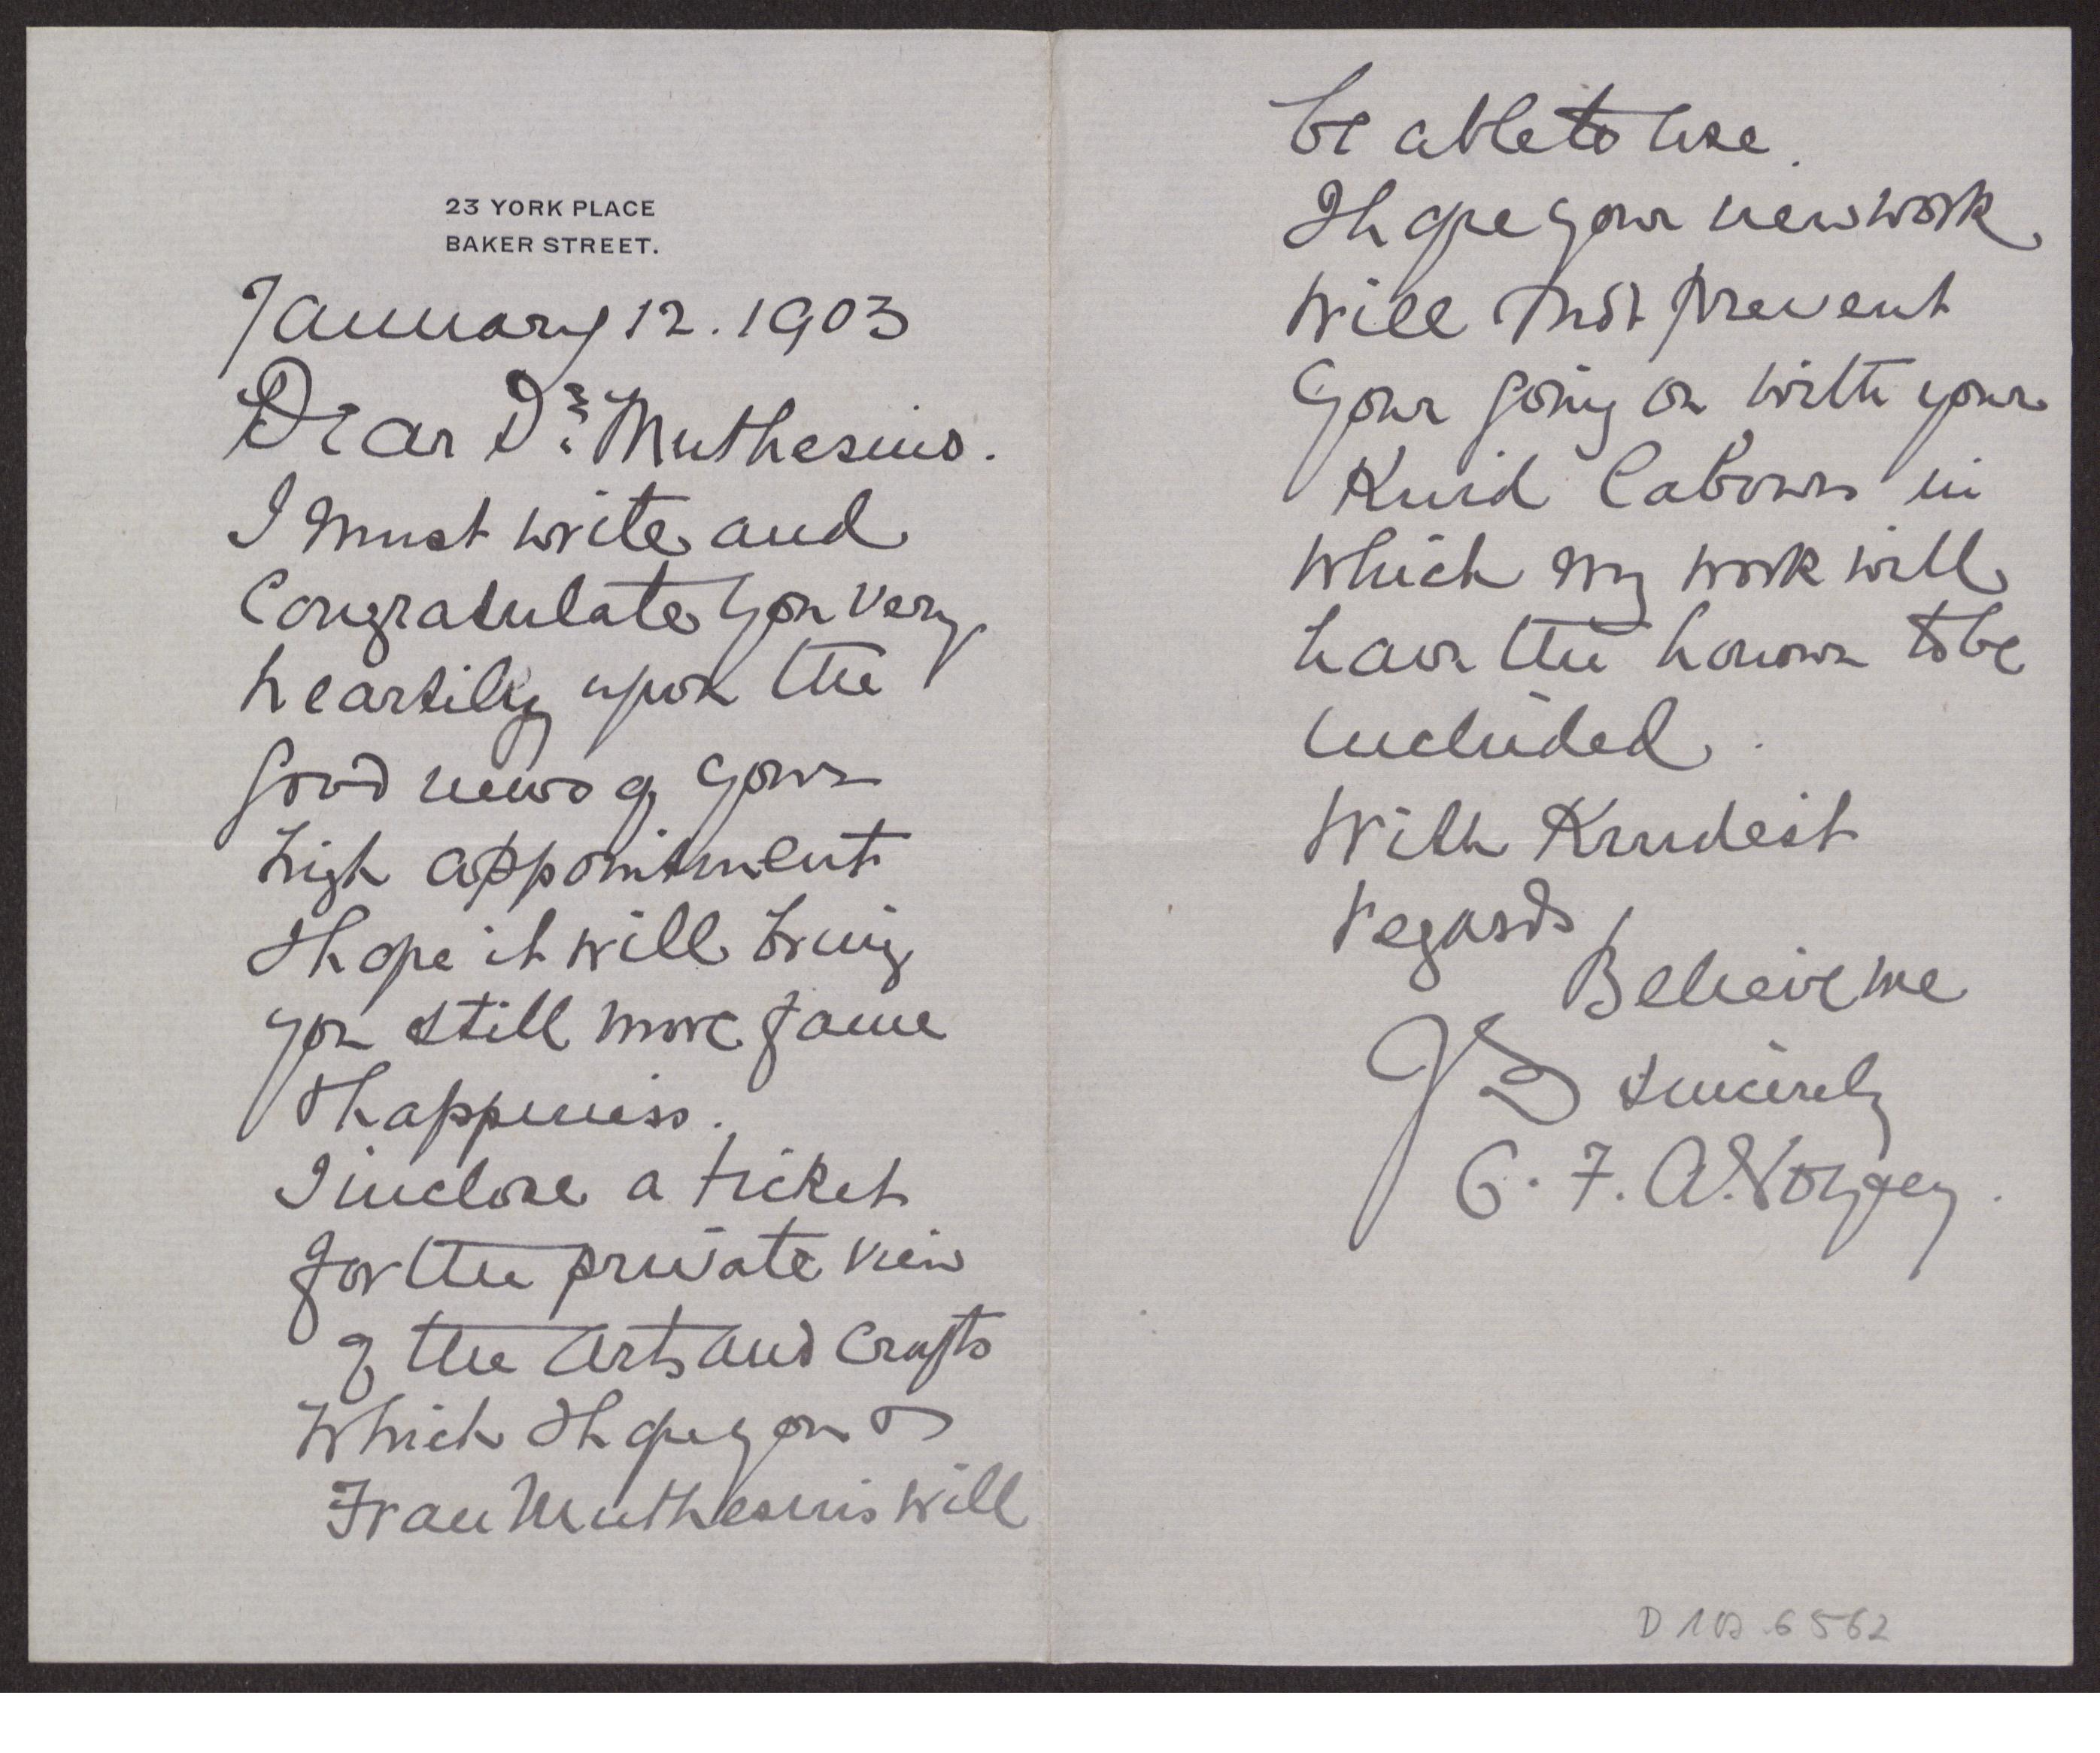 23 YORK PLACE
BAKER STREET.
January 12. 1903
Dear Dr: Muthesius.
I must write and
Congratulate you very
heartily upon the
good news of your
high appointment
I hope it will bring
you still more fame
& happiness.
I inclose a ticket
for the private view
of the Arts and Crafts
which I hope you &
Frau Muthesius will
be able to use.
I hope your new work
will not prevent
your going on with your
Kind labours in
which my work will
have the honour to be
included.
With Kindest
regards,
Believe me
Yrs sincerely
C. F. A. Voysey.
D 102-6562